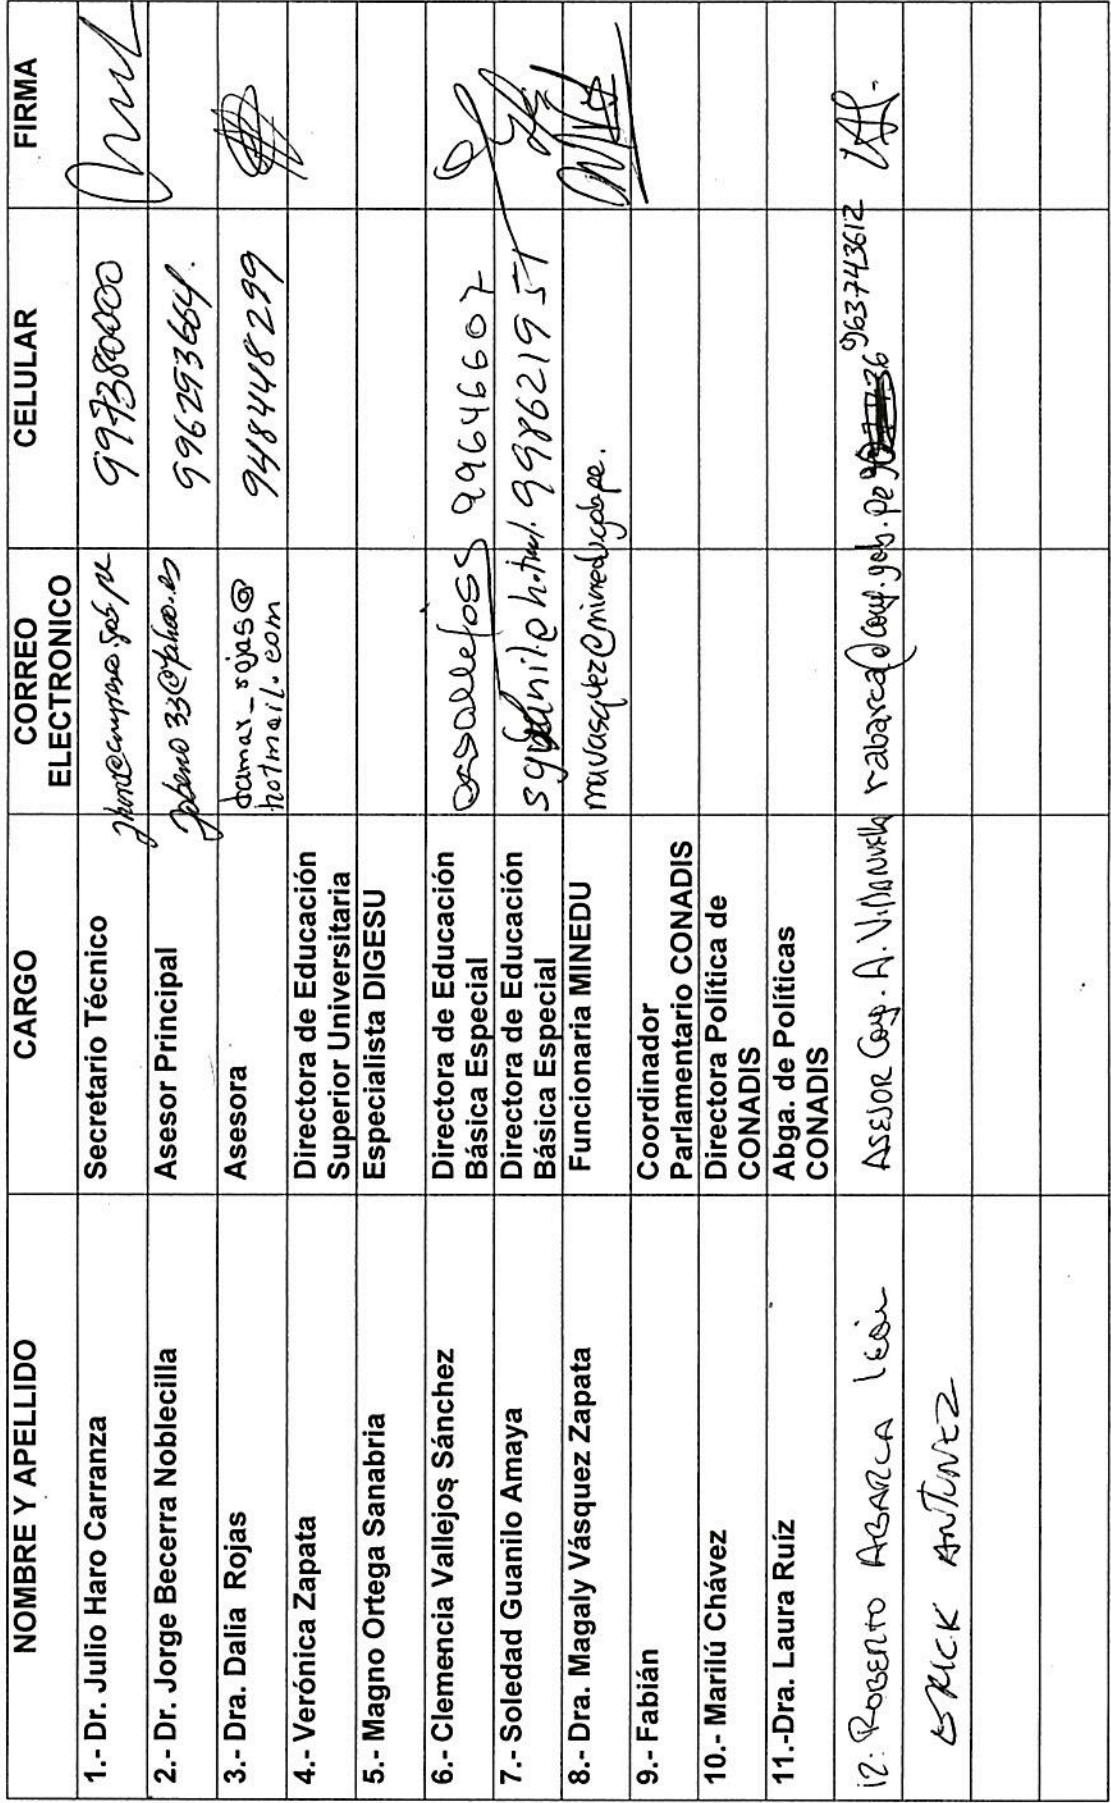 NOMBRE Y APELLIDO CARGO CORREO ELECTRONICO CELULAR FIRMA
1.- Dr. Julio Haro Carranza Secretario Técnico 997380000
2.- Dr. Jorge Becerra Noblecilla Asesor Principal 996293664.
3.- Dra. Dalia Rojas Asesora damar_rojas@ 948448299
hotmail.com
4.- Verónica Zapata Directora de Educación
Superior Universitaria
5.- Magno Ortega Sanabria Especialista DIGESU
6.- Clemencia Vallejos Sánchez Directora de Educación
Básica Especial
7.- Soledad Guanilo Amaya Directora de Educación
Básica Especial
8.- Dra. Magaly Vásquez Zapata Funcionaria MINEDU
9.- Fabián Coordinador
Parlamentario CONADIS
10.- Marilú Chávez Directora Política de
CONADIS
11.-Dra. Laura Ruíz Abga. de Políticas
CONADIS
12: ROBERTO ABARCA León ASESOR Cong. A. Villanueva 963743612
ERICK ANTUNEZ